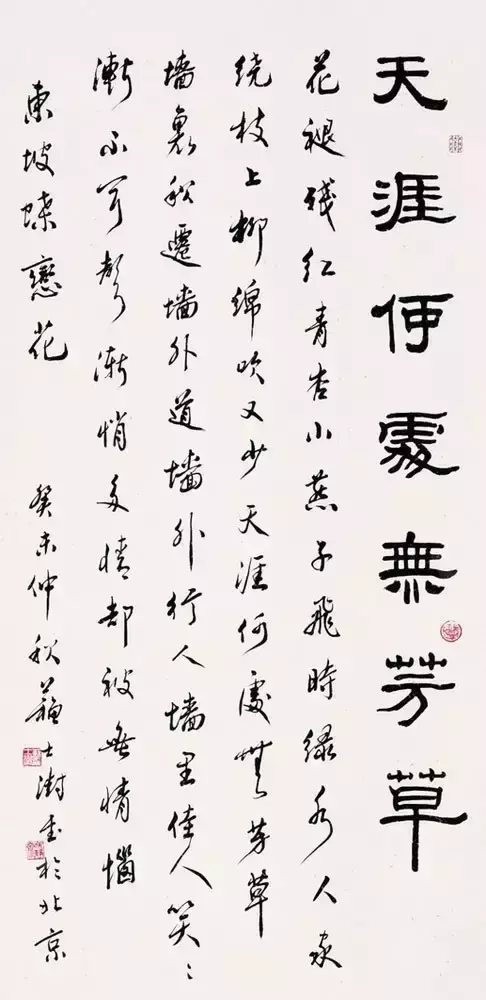 天涯何處無芳草
花褪殘红青杏小燕子飛時緑水人家
绕枝上柳绵吹又少天涯何處無芳草
墙裏秋遷墙外道墙外行人墙里佳人笑ミ
漸不闻聲漸悄多情却被無情惱
東坡蝶戀花 癸未仲秋蘇士澍書於北京